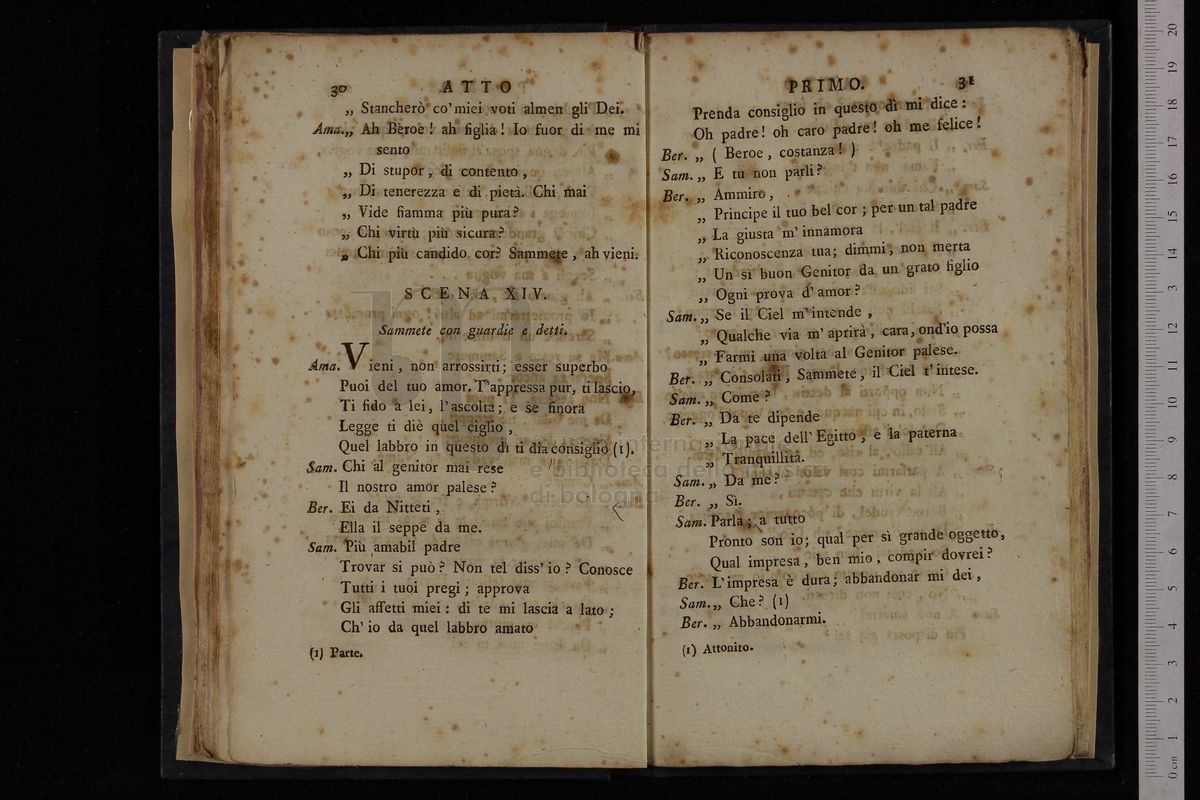 30 ATTO
„ Stancherò co' miei voti almen gli Dei.
Ama. „ Ah Beroe! ah figlia! Io fuor di me mi
sento
„ Di stupor, di contento,
„ Di tenerezza e di pietà. Chi mai
„ Vide fiamma più pura?
„ Chi virtù più sicura?
„ Chi più candido cor? Sammete, ah vieni.
SCENA XIV.
Sammete con guardie e detti.
Ama. Vieni, non arrossirti; esser superbo
Puoi del tuo amor. T'appressa pur, ti lascio,
Ti fido a lei, l'ascolta; e se finora
Legge ti diè quel ciglio,
Quel labbro in questo dì ti dia consiglio (1).
Sam. Chi al genitor mai rese
Il nostro amor palese?
Ber. Ei da Nitteti,
Ella il seppe da me.
Sam. Più amabil padre
Trovar si può? Non tel diss' io? Conosce
Tutti i tuoi pregi; approva
Gli affetti miei: di te mi lascia a lato;
Ch' io da quel labbro amato
(1) Parte.
PRIMO. 31
Prenda consiglio in questo dì mi dice:
Oh padre! oh caro padre! oh me felice!
Ber. „ ( Beroe, costanza! )
Sam. „ E tu non parli?
Ber. „ Ammiro,
„ Principe il tuo bel cor; per un tal padre
„ La giusta m' innamora
„ Riconoscenza tua; dimmi, non merta
„ Un sì buon Genitor da un grato figlio
„ Ogni prova d' amor?
Sam. „ Se il Ciel m' intende,
„ Qualche via m' aprirà, cara, ond'io possa
„ Farmi una volta al Genitor palese.
Ber. „ Consolati, Sammete, il Ciel t' intese.
Sam. „ Come?
Ber. „ Da te dipende
„ La pace dell' Egitto, e la paterna
„ Tranquillità.
Sam. „ Da me?
Ber. „ Sì.
Sam. Parla; a tutto
Pronto son io; qual per sì grande oggetto,
Qual impresa, ben mio, compir dovrei?
Ber. L'impresa è dura; abbandonar mi dei,
Sam. „ Che? (1)
Ber. „ Abbandonarmi.
(1) Attonito.